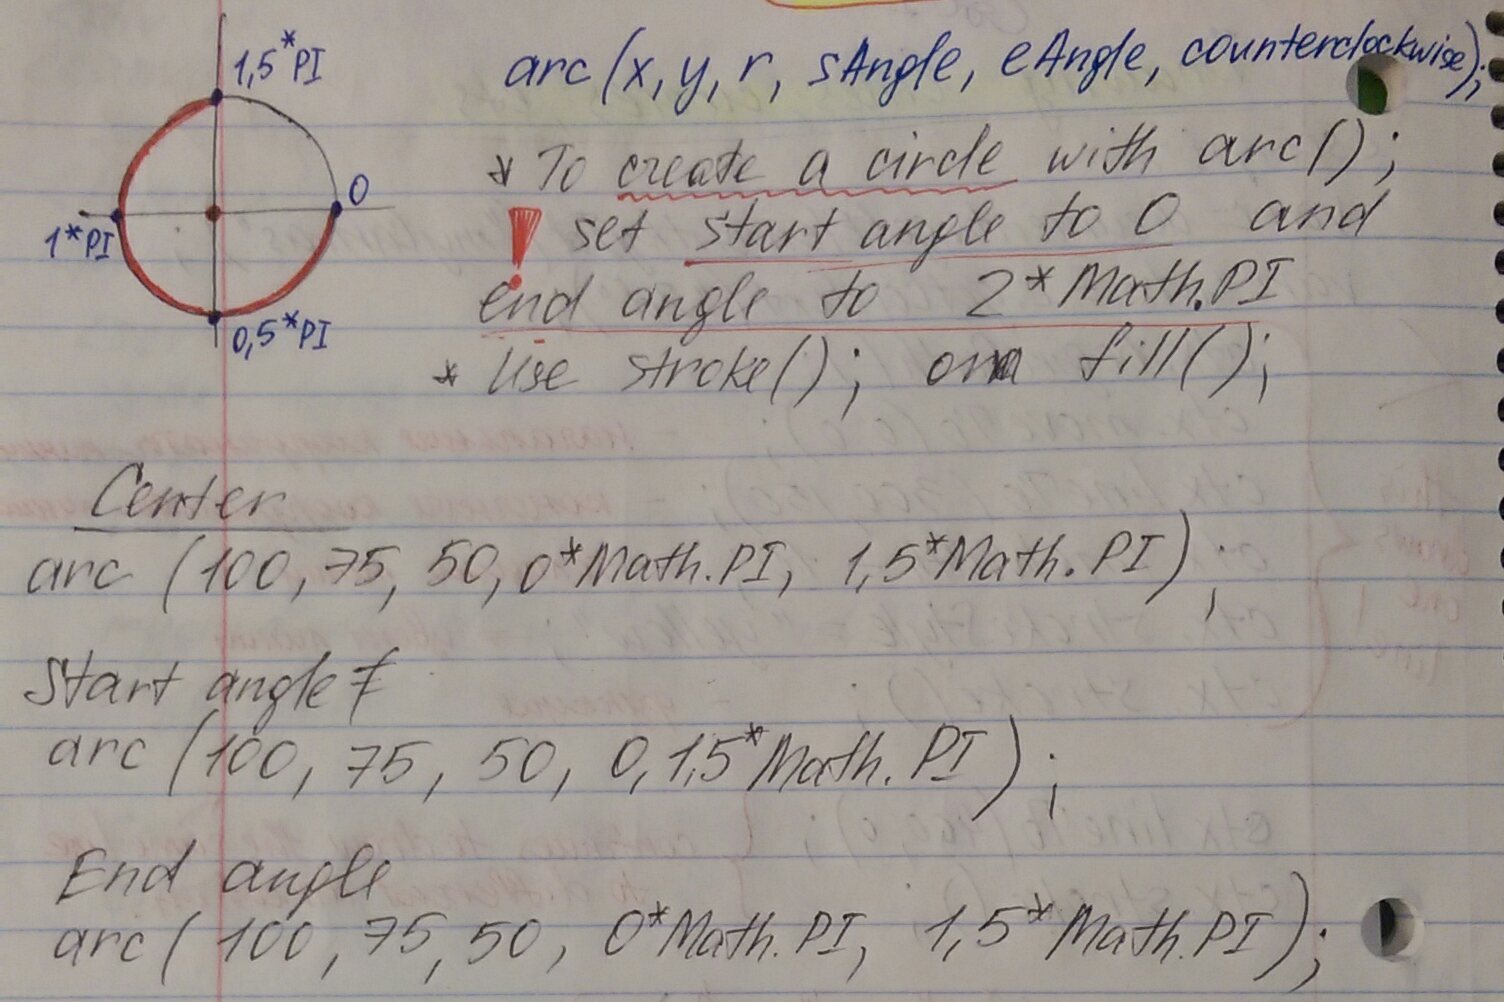 1,5*PI
0
1*PI
0,5*PI
arc (x, y, r, sAngle, eAngle, counterclockwise);
* To create a circle with arc();
! set start angle to 0 and
end angle to 2*Math.PI
* Use stroke(); fill();
Center
arc (100, 75, 50, 0*Math.PI, 1,5*Math.PI);
Start angle
arc (100, 75, 50, 0, 1,5*Math.PI);
End angle
arc (100, 75, 50, 0*Math.PI, 1,5*Math.PI);